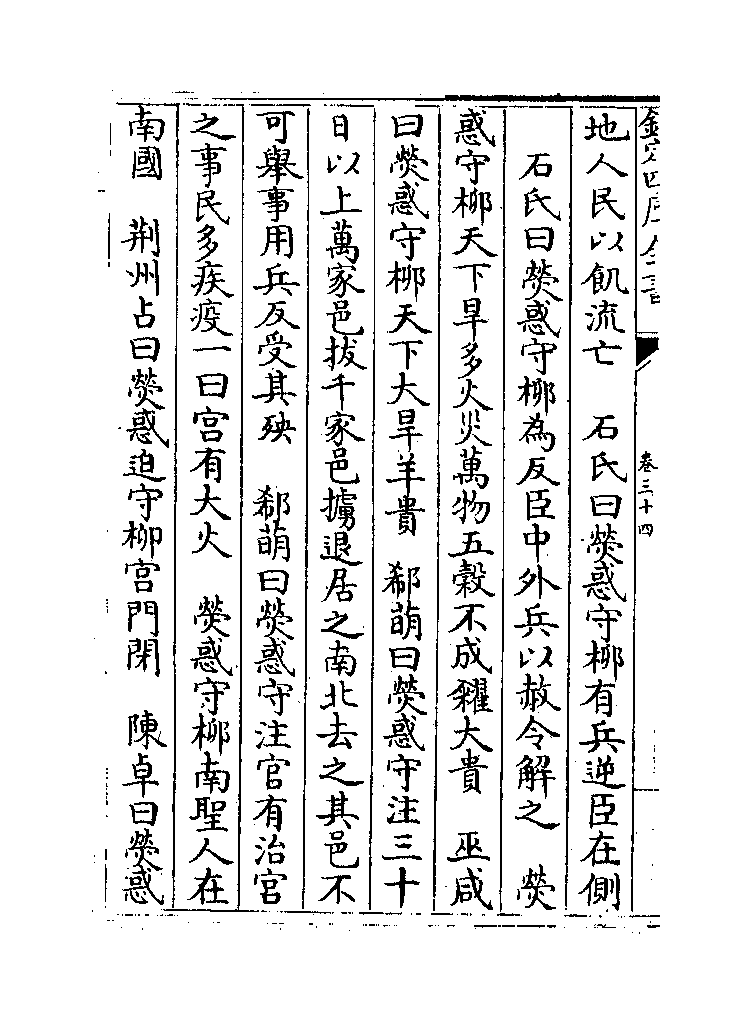 欽定四庫全書
卷三十四
地人民以飢流亡　石氏曰熒惑守柳有兵逆臣在側
石氏曰熒惑守柳為反臣中外兵以赦令解之　熒
惑守柳天下旱多火災萬物五穀不成糴大貴　巫咸
曰熒惑守柳天下大旱羊貴　郗萌曰熒惑守注三十
日以上萬家邑拔千家邑擄退居之南北去之其邑不
可舉事用兵反受其殃　郗萌曰熒惑守注官有治宫
之事民多疾疫一曰宫有大火　熒惑守柳南聖人在
南國　荆州占曰熒惑迫守柳宫門閉　陳卓曰熒惑